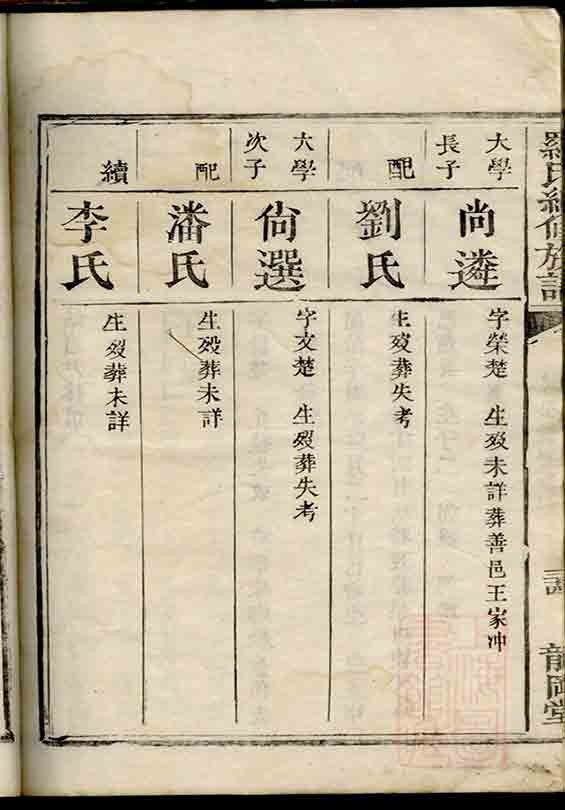 羅氏續修族譜
龍岡堂
大學長子
尚遴
字榮楚 生歿未詳葬善邑王家冲
配
劉氏
生歿葬失考
大學次子
尚選
字文楚 生歿葬失考
配
潘氏
生歿葬未詳
續
李氏
生歿葬未詳